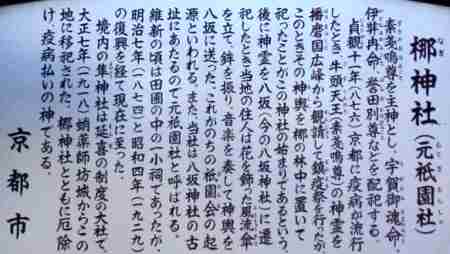 梛神社(元祇園社)
素戔嗚尊を主神とし、宇賀御魂命、
伊弉冉命、誉田別尊などを配祀する。
貞観十一年(八七六)京都に疫病が流行
したとき、牛頭天王(素戔嗚尊)の神霊を
播磨国広峰から勧請して鎮疫祭を行ったが、
このときその神輿を梛の林中に置いて
祀ったことがこの神社の始まりであるという。
後に神霊を八坂(今の八坂神社)に遷
祀したとき当地の住人は花を飾った風流傘
を立て、鉾を振り、音楽を奏して神輿を
八坂に送った。これがのちの祇園会の起
源といわれる。また、当社は八坂神社の古
址にあたるので元祇園社と呼ばれる。
維新の頃は田圃の中の一小祠であったが、
明治七年(一八七四)と昭和四年(一九二九)
の復興を経て現在に至った。
境内の隼神社は延喜の制度の大社で、
大正七年(一九一八)蛸薬師坊城からこの
地に移祀された。梛神社とともに厄除
け、疫病払いの神である。
京都市